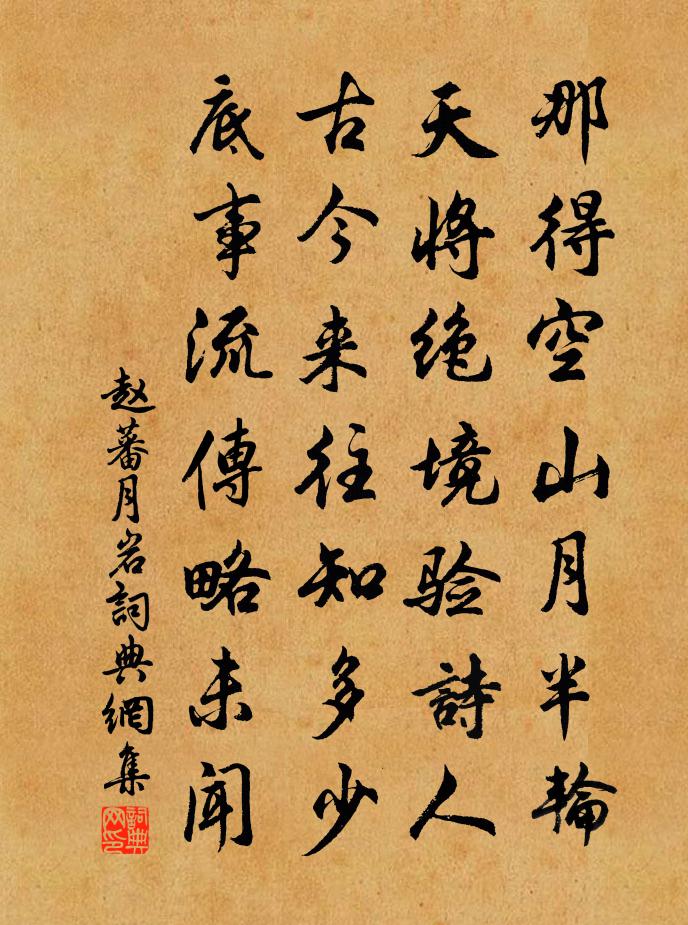 那得空山月半輪
天将绝境验詩人
古今来往知多少
底事流傳略未聞
赵蕃月岩詞典網集
詞典网印